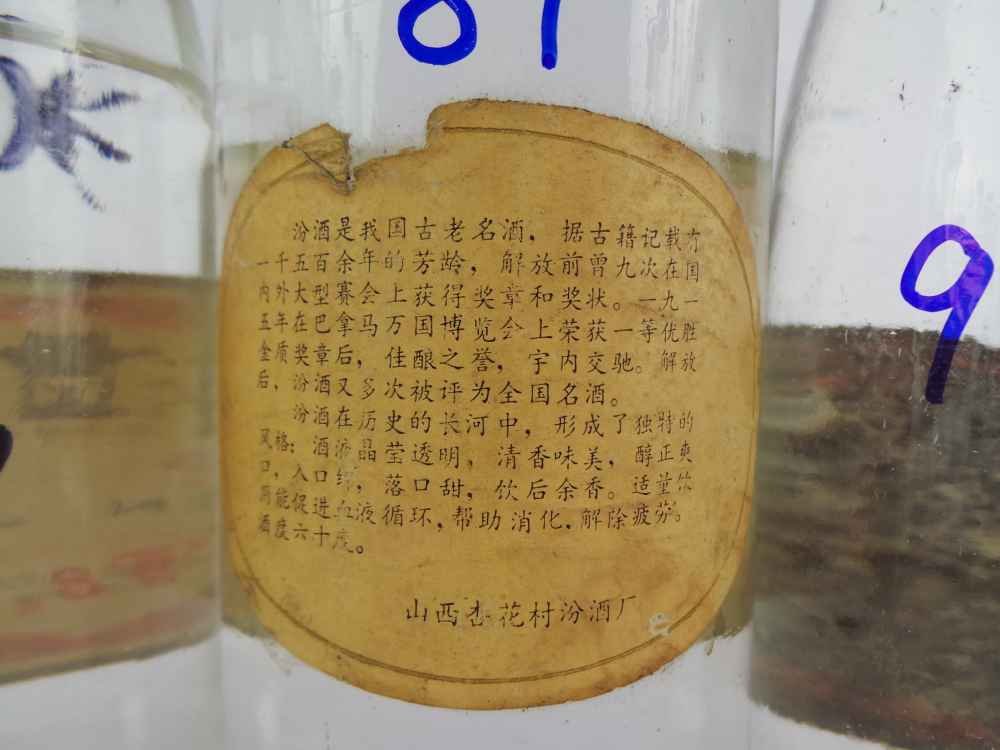 87
9
汾酒是我国古老名酒. 据古籍记载有
一千五百余年的芳龄, 解放前曾九次在国
内外大型赛会上获得奖章和奖状。一九一
五年在巴拿马万国博览会上荣获一等优胜
金质奖章后, 佳酿之誉, 宇内交驰。解放
后, 汾酒又多次被评为全国名酒。
汾酒在历史的长河中, 形成了独特的
风格: 酒液晶莹透明, 清香味美, 醇正爽
口, 入口绵, 落口甜, 饮后余香。适量饮
能促进血液循环, 帮助消化. 解除疲劳。
酒度六十度。
山西杏花村汾酒厂